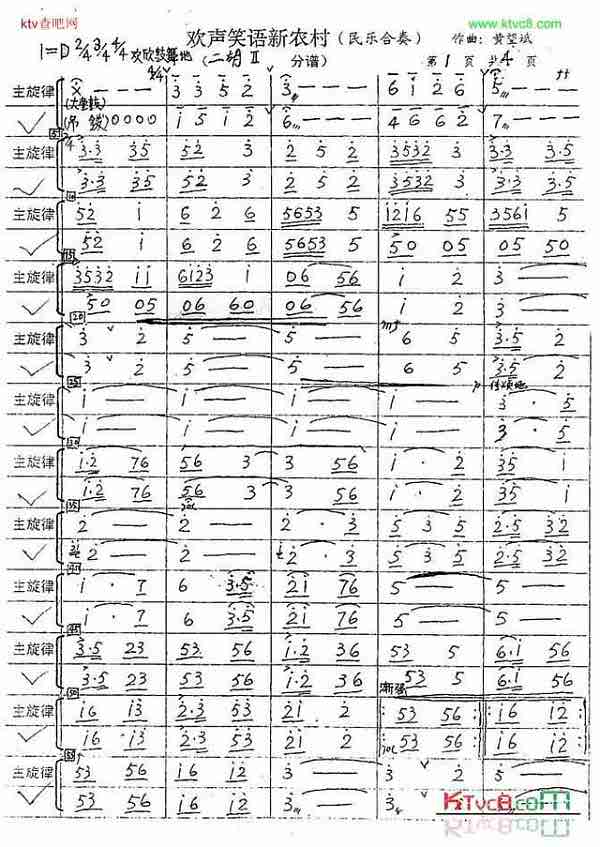 ktv查吧网
www.ktvc8.com
欢声笑语新农村(民乐合奏) 作曲:黄堃斌
1=D 2/4 3/4 4/4 欢欣鼓舞地 (二胡II 分谱) 第1页 共4页
4/4 廾
主旋律 X - - - 3 3 5 2 3 - - - 6 1 2 6 5 - - -
(大堂鼓)
(吊镲) 0000 1 5 1 2 6 - - - 4 6 6 2 7 - - -
5
主旋律 3·3 35 52 3 2 5 2 3532 3 3·3 3·5
3·3 35 52 3 2 5 2 3532 3 3·3 3·5
10
主旋律 52 1 6 2 6 5653 5 1216 55 3561 5
52 1 6 2 6 5653 5 50 05 05 50
15
主旋律 3532 11 6123 1 06 56 1 2 3 - -
50 05 06 60 06 56 1 2 3 - -
20
mf
主旋律 3 2 5 - - 5 - - 6 5 3·5 2
3 2 5 - - 5 - - 6 5 3·5 2
25
主旋律 1 - - 1 - - 1 - - 1 - - 3 · 5
1 - - 1 - - 1 - - 1 - - 3 · 5
30
主旋律 1·2 76 56 3 3 56 1 · 2 35 1
1·2 76 56 3 3 56 1 · 2 35 1
35
主旋律 2 - - 2 - - 2 · 3 5 3 5 2·5 32
2 - - 2 - - 2 · 3 5 3 5 2·5 32
主旋律 1 · 7 6 3·5 21 76 5 - - 5 - -
1 · 7 6 3·5 21 76 5 - - 5 - -
45
主旋律 3·5 23 53 56 1·2 36 53 5 6·1 56
3·5 23 53 56 1·2 36 53 5 6·1 56
50
渐强
主旋律 16 13 2·3 53 21 2 53 56 16 12
16 13 2·3 53 21 2 53 56 16 12
55
主旋律 53 56 16 12 3 - - 3 2 5 - -
53 56 16 12 3 - - 3
KTvc8.com